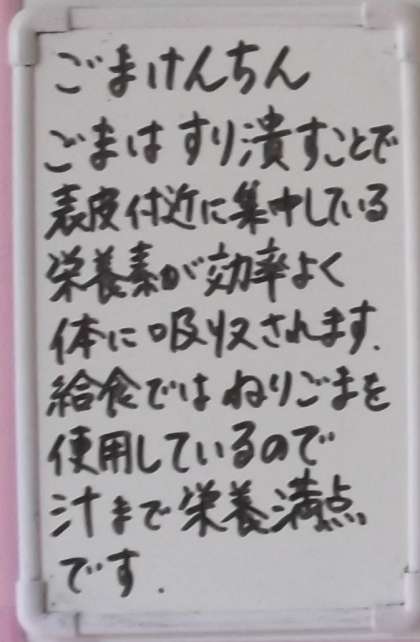 ごまけんちん
ごまは すり潰すことで
表皮付近に集中している
栄養素が効率よく
体に吸収されます.
給食では ねりごまを
使用しているので
汁まで栄養満点
です.